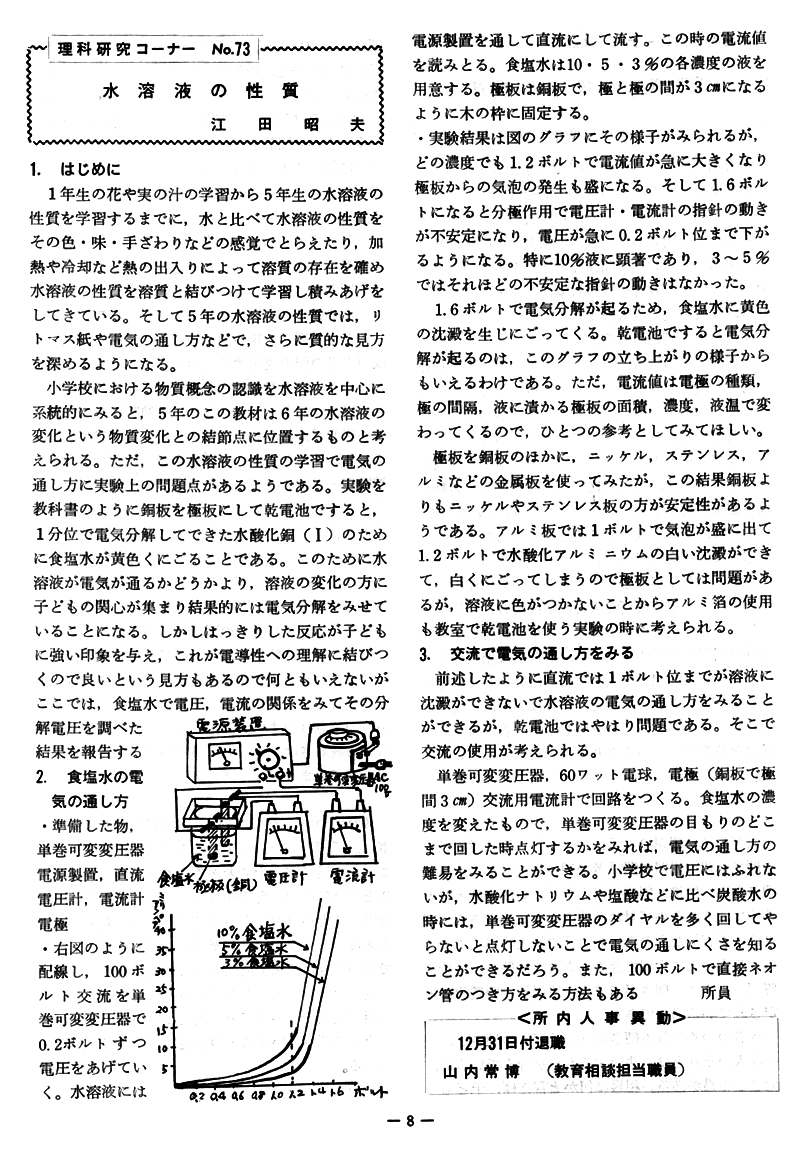 理科研究コーナー No.73
水溶液の性質
江田昭夫
1. はじめに
1年生の花や実の汁の学習から5年生の水溶液の
性質を学習するまでに，水と比べて水溶液の性質を
その色・味・手ざわりなどの感覚でとらえたり，加
熱や冷却など熱の出入りによって溶質の存在を確め
水溶液の性質を溶質と結びつけて学習し積みあげを
してきている。そして5年の水溶液の性質では，リ
トマス紙や電気の通し方などで，さらに質的な見方
を深めるようになる。
小学校における物質概念の認識を水溶液を中心に
系統的にみると，5年のこの教材は6年の水溶液の
変化という物質変化との結節点に位置するものと考
えられる。ただ，この水溶液の性質の学習で電気の
通し方に実験上の問題点があるようである。実験を
教科書のように銅板を極板にして乾電池ですると，
1分位で電気分解してできた水酸化銅（Ⅰ）のため
に食塩水が黄色くにごることである。このために水
溶液が電気が通るかどうかより，溶液の変化の方に
子どもの関心が集まり結果的には電気分解をみせて
いることになる。しかしはっきりした反応が子ども
に強い印象を与え，これが電導性への理解に結びつ
くので良いという見方もあるので何ともいえないが
ここでは，食塩水で電圧，電流の関係をみてその分
解電圧を調べた
結果を報告する
2. 食塩水の電
気の通し方
・準備した物，
単巻可変変圧器
電源製置，直流
電圧計，電流計
電極
・右図のように
配線し，100ボ
ルト交流を単
巻可変変圧器で
0.2ボルトずつ
電圧をあげてい
く。水溶液には
電源装置
単巻可変変圧器AC
食塩水
極板(銅)
電圧計
電流計
10%食塩水
5%食塩水
3%食塩水
40
35
30
25
20
15
10
5
0.2 0.4 0.6 0.8 1.0 1.2 1.4 1.6 ボルト
電源製置を通して直流にして流す。この時の電流値
を読みとる。食塩水は10・5・3％の各濃度の液を
用意する。極板は銅板で，極と極の間が3cmになる
ように木の枠に固定する。
・実験結果は図のグラフにその様子がみられるが，
どの濃度でも1.2ボルトで電流値が急に大きくなり
極板からの気泡の発生も盛になる。そして1.6ボル
トになると分極作用で電圧計・電流計の指針の動き
が不安定になり，電圧が急に0.2ボルト位まで下が
るようになる。特に10％液に顕著であり，3～5％
ではそれほどの不安定な指針の動きはなかった。
1.6ボルトで電気分解が起るため，食塩水に黄色
の沈澱を生じにごってくる。乾電池ですると電気分
解が起るのは，このグラフの立ち上がりの様子から
もいえるわけである。ただ，電流値は電極の種類，
極の間隔，液に漬かる極板の面積，濃度，液温で変
わってくるので，ひとつの参考としてみてほしい。
極板を銅板のほかに，ニッケル，ステンレス，ア
ルミなどの金属板を使ってみたが，この結果銅板よ
りもニッケルやステンレス板の方が安定性があるよ
うである。アルミ板では1ボルトで気泡が盛に出て
1.2ボルトで水酸化アルミニウムの白い沈澱ができ
て，白くにごってしまうので極板としては問題があ
るが，溶液に色がつかないことからアルミ箔の使用
も教室で乾電池を使う実験の時に考えられる。
3. 交流で電気の通し方をみる
前述したように直流では1ボルト位までが溶液に
沈澱ができないで水溶液の電気の通し方をみること
ができるが，乾電池ではやはり問題である。そこで
交流の使用が考えられる。
単巻可変変圧器，60ワット電球，電極（銅板で極
間3cm）交流用電流計で回路をつくる。食塩水の濃
度を変えたもので，単巻可変変圧器の目もりのどこ
まで回した時点灯するかをみれば，電気の通し方の
難易をみることができる。小学校で電圧にはふれな
いが，水酸化ナトリウムや塩酸などに比べ炭酸水の
時には，単巻可変変圧器のダイヤルを多く回してや
らないと点灯しないことで電気の通しにくさを知る
ことができるだろう。また，100ボルトで直接ネオ
ン管のつき方をみる方法もある 所員
＜所内人事異動＞
12月31日付退職
山内常博 （教育相談担当職員）
— 8 —